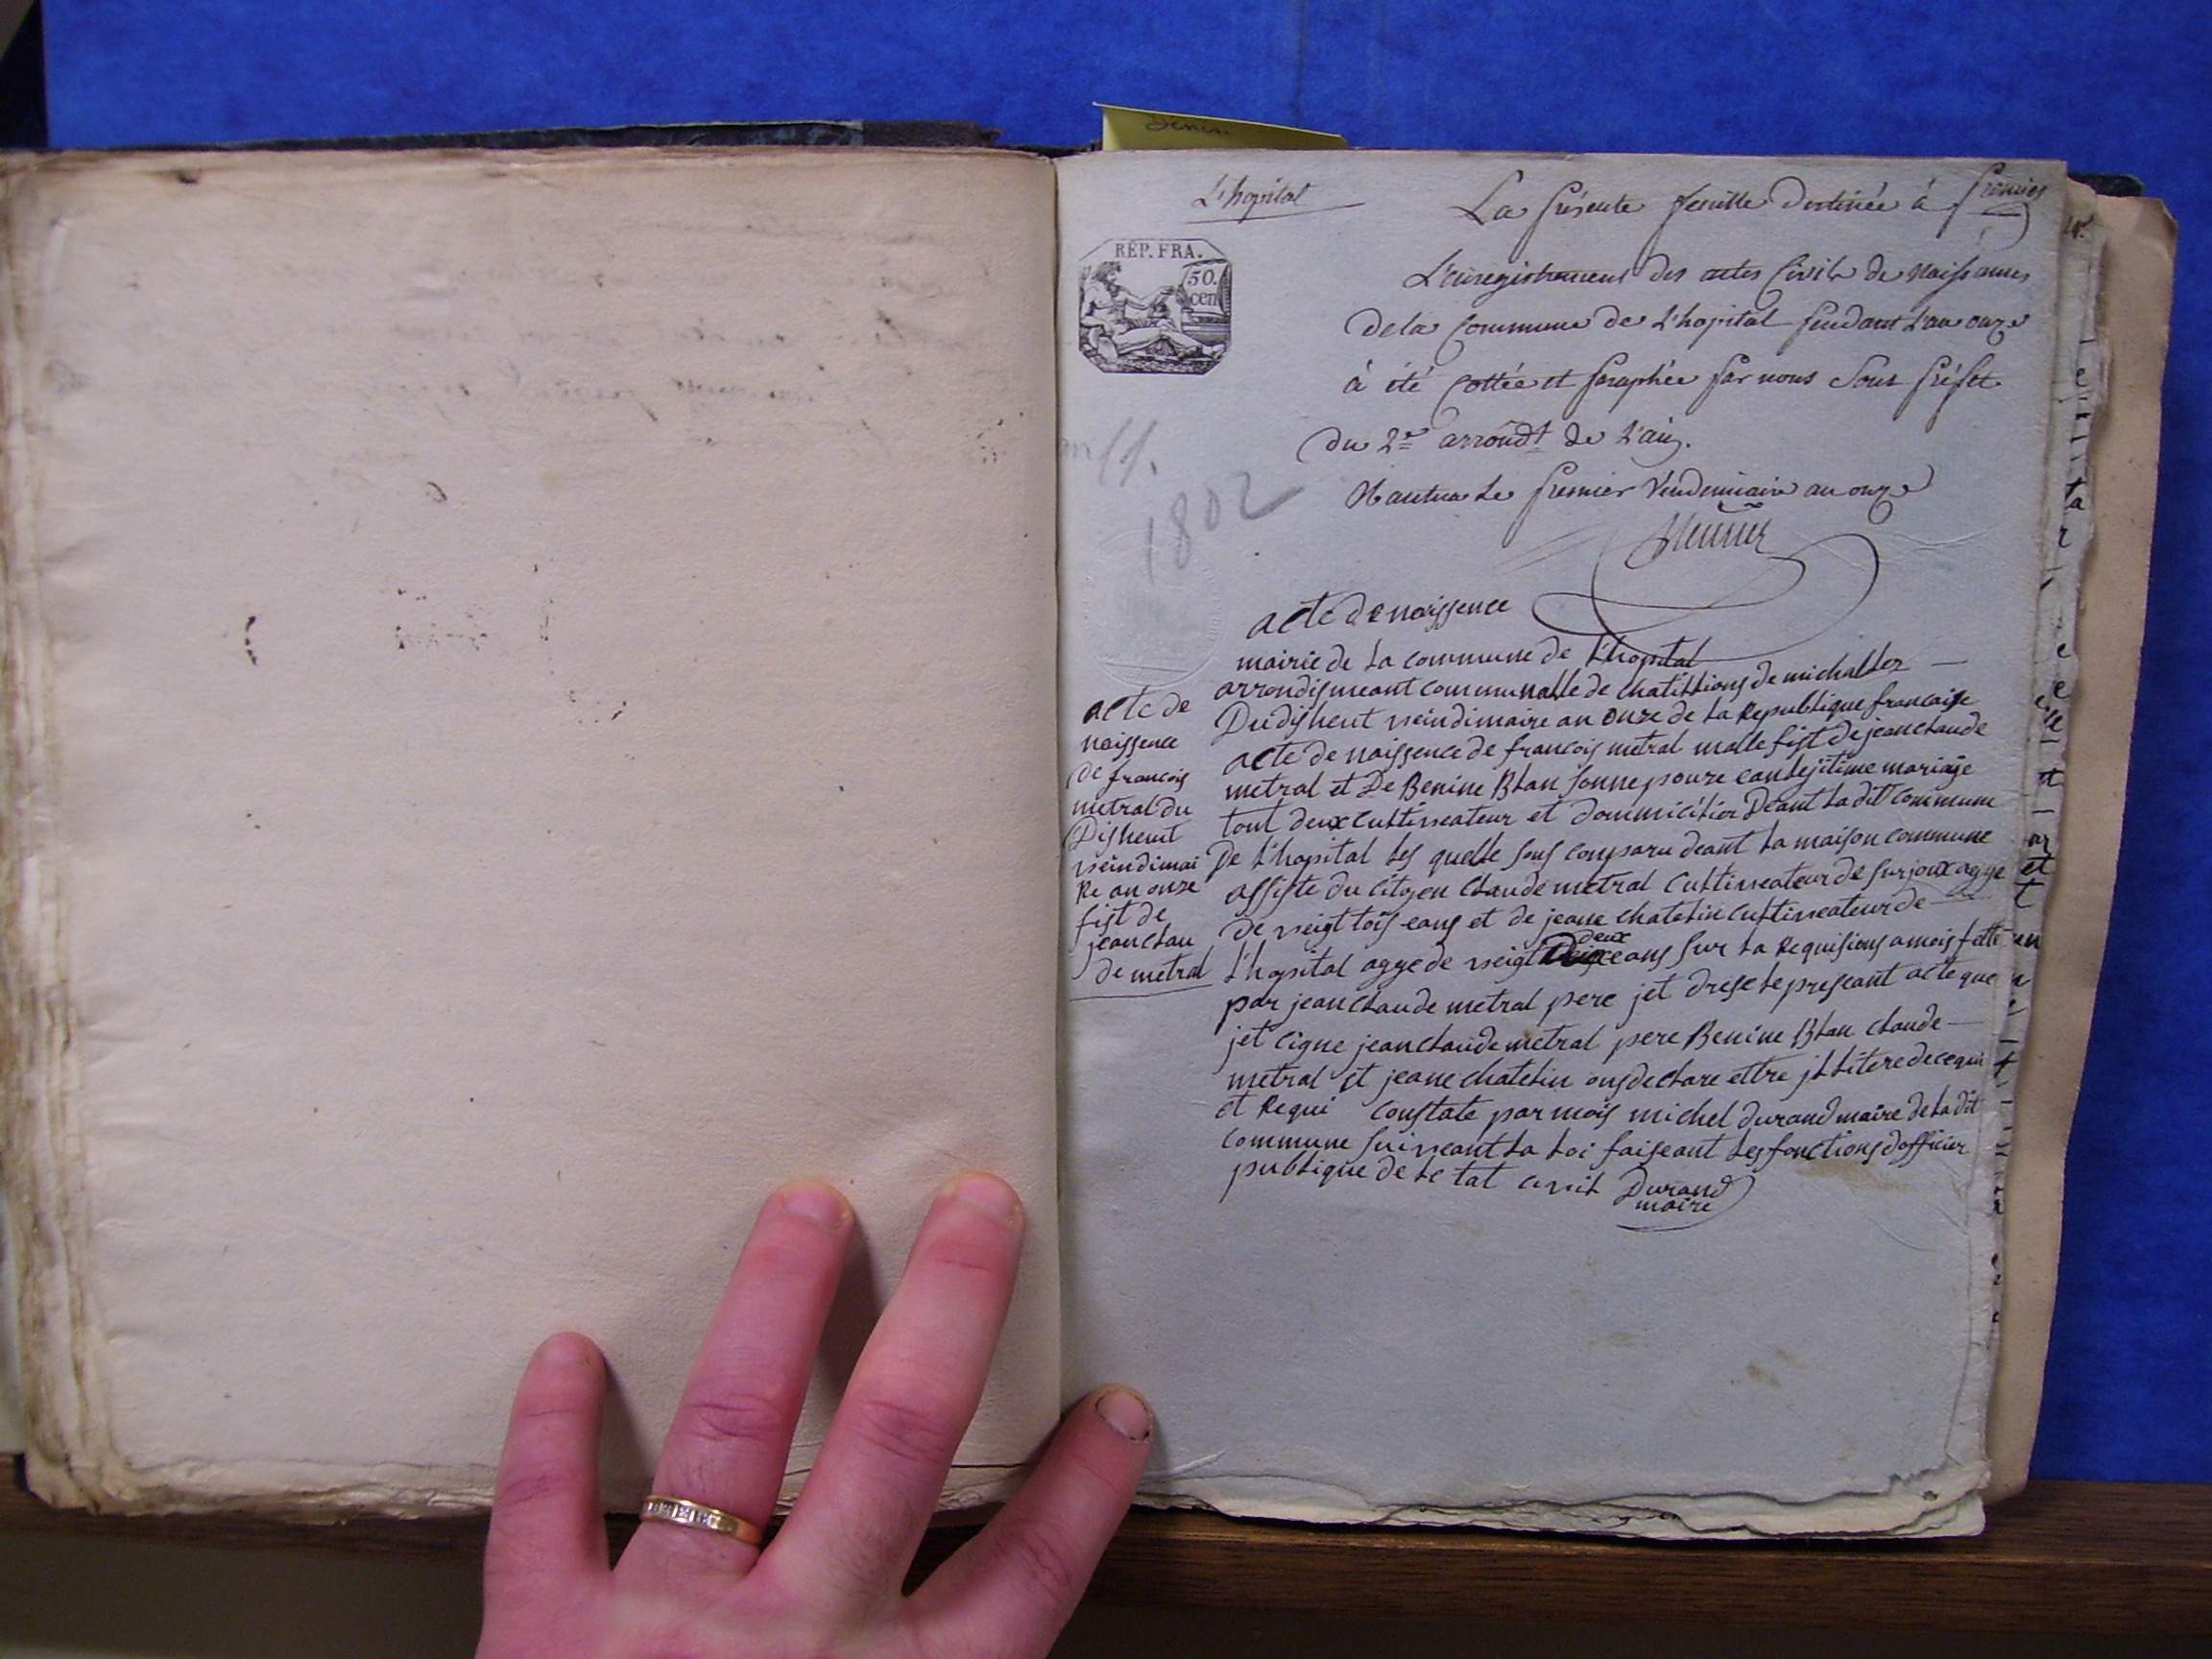 L'hopital
premier
La présente feuille destinée à
RÉP. FRA.
50.
cen
L'enregistrement des actes Civils de naissances
de la Commune de L'hopital pendant L'an onze
à été Cottée et paraphée par nous Sous préfet
du 2e arrondt de L'ain.
Nantua le premier Vendemiaire an onze
an 11.
1802
acte de naissence
mairie de la commune de L'hopital
arrondismeant communalle de chatillions de michalles
Du disheut veindimaire an onze de la Republique francaise
acte de naissence de francois metral malle fist de jean claude
metral et De Benine Blan
tout deux cultiveateur et dommicilier Deant la dit commune
De L'hopital les quelle sons comparu deant la maison commune
assiste du citoyen claude metral cultiveateur de surjoux agge
de veigt tois eans et de jeane chatelin cultiveateur de
deux
L'hopital agge de veigt eans sur la Requisions a mois fette
par jean claude metral pere jet drese le preseant acte que
jet cigne jean claude metral pere Benine Blan claude
metral et jeane chatelin ons declare ettre jllitere de ce qui
et Requi constate par mois michel durand maire de la dit
commune suiveant la loi faiseant les fonctions dofficier
publique de le tat cevil Durand
maire
acte de
naissence
de francois
metral du
Disheut
veindimai
Re an onze
fist de
jean clau
de metral